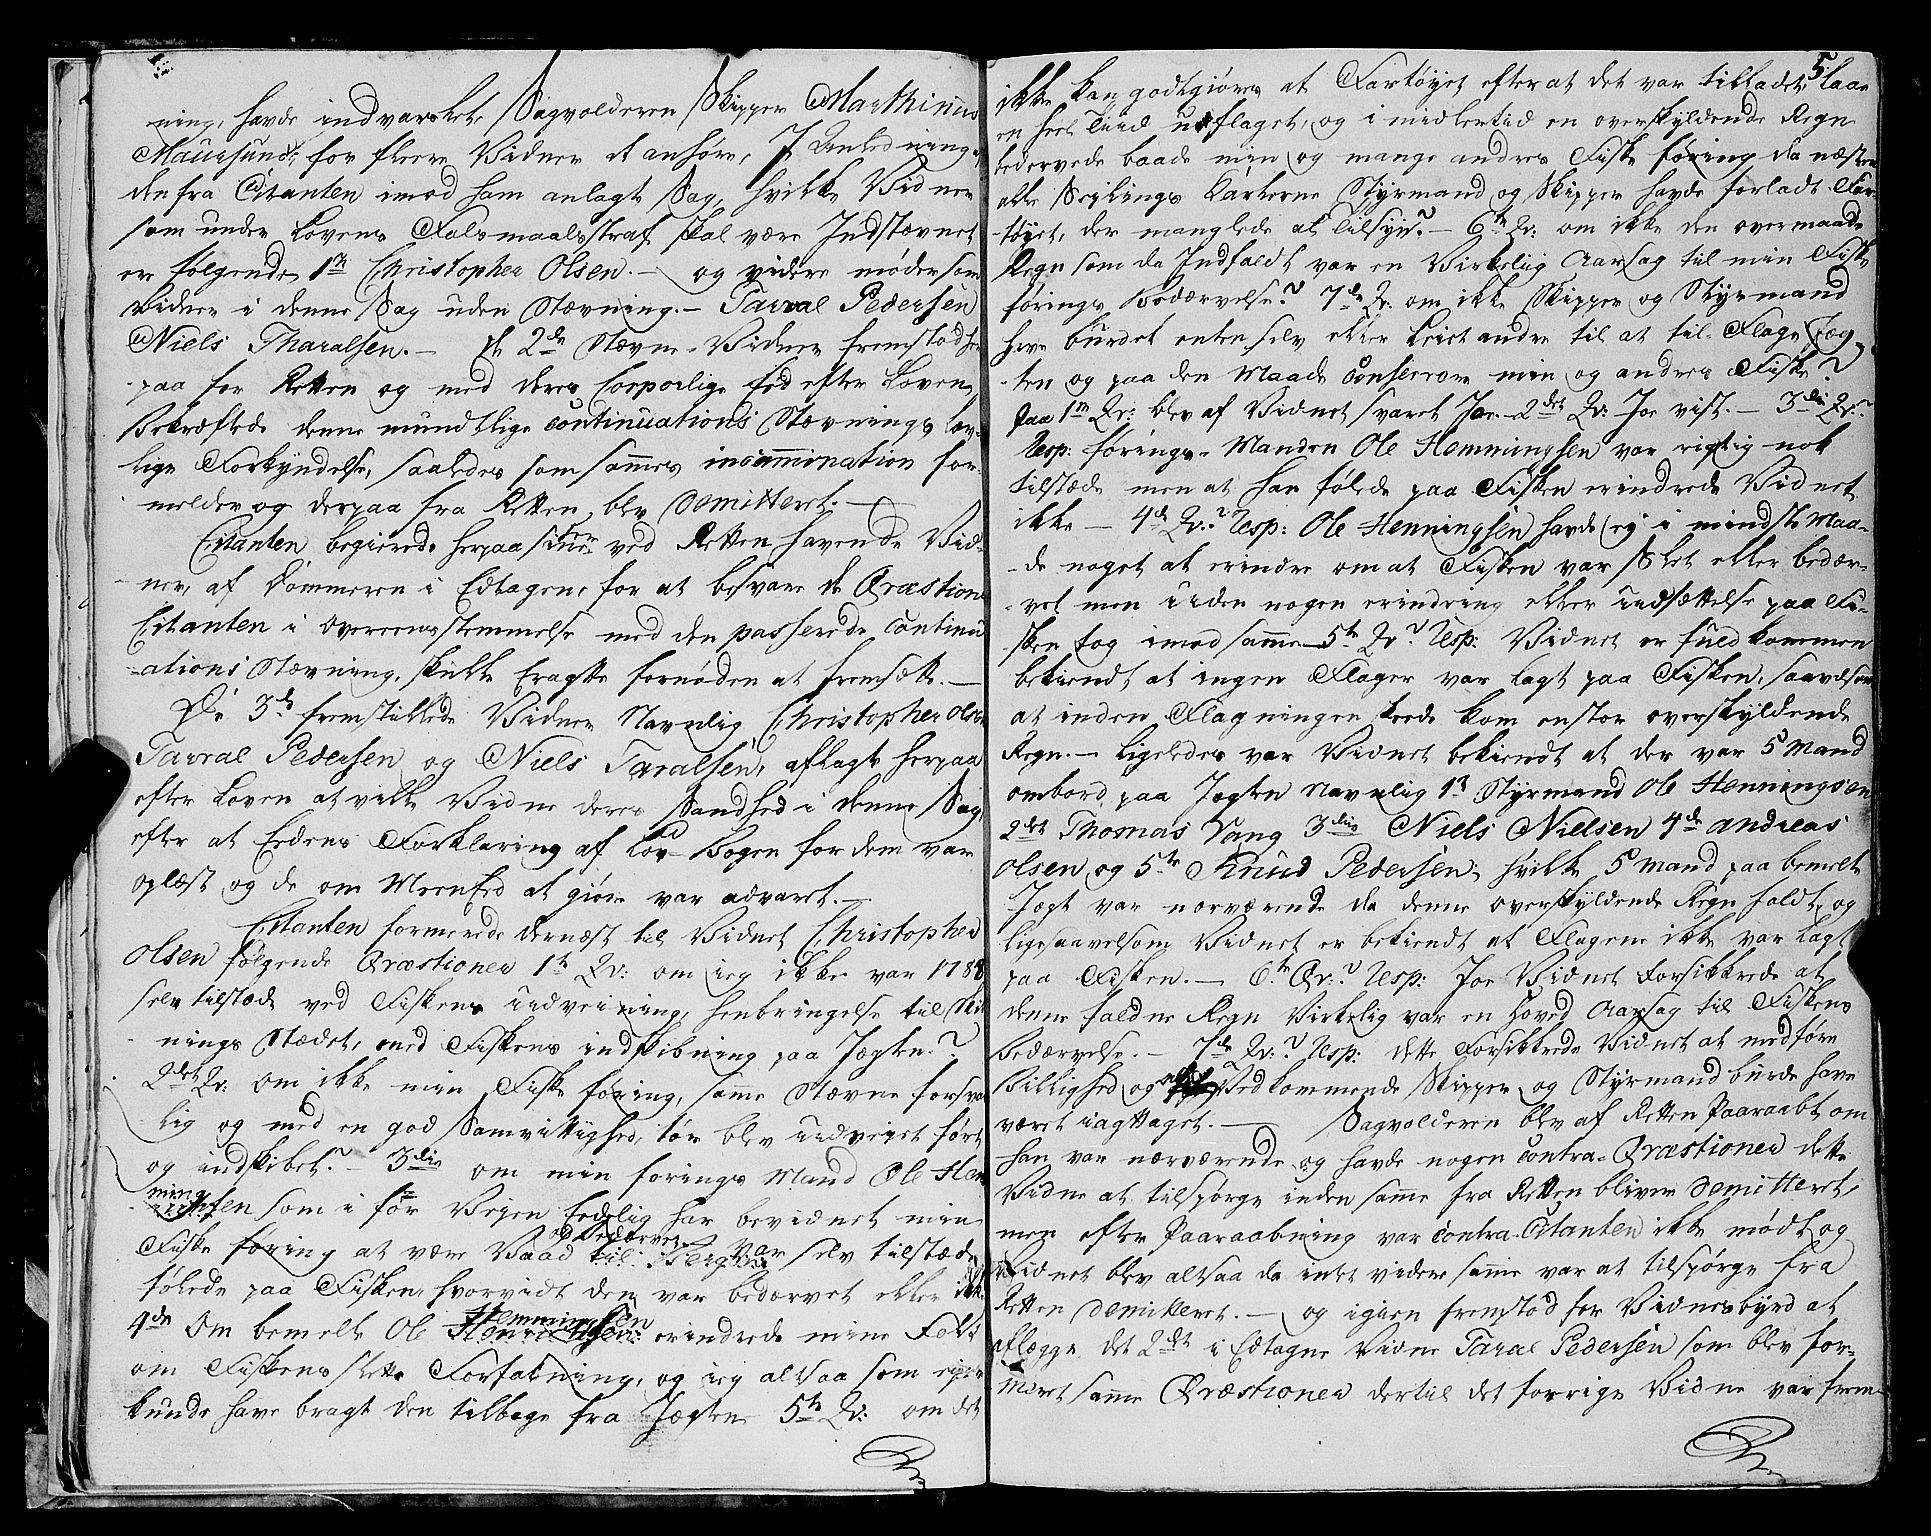 ning, havde indvarslet, Sagvolderen Skipper Marthinus
Mauesund, for fleere Vidner at anhøre, I Anledning af
den fra Citanten imod ham anlagte Sag, hvilke Vidner
som under Lovens Falsmaalsstraf skal være Indstævnet
er følgende, 1te Christopher Olsen. – og videre møder som
Vidner i denne Sag uden Stævning. – Tarral Pedersen
Niels Tharalsen. – De 2de Stævne-Vidner fremstod her
paa for Retten og med deres Corporlige Eed efter Loven,
Bekræftede denne mundtlige Continuations Stævnings lov-
lige Forkyndelse, saaledes som sammes incammination for-
melder og derpaa fra Retten blev Demitteret. –
Citanten begierede herpaa sine ved Retten havende Vid-
ner, af Dommeren i Edtagen, for at besvare de Qvæstion
Citanten i overeensstemmelse med den passerede Continu
ations Stævning, skulle Eragte fornøden at fremsætte. –
De 3de fremstillede Vidner Navnlig Christopher Olsen
Tarral Pedersen og Niels Taralsen, aflagte herpaa
efter Loven at ville Vidne deres Sandhed i denne Sag,
efter at Eedens Forklaring af Lov-Bogen for dem var
oplæst og de om MeenEed at giøre var advaret. –
Citanten formerede dernæst til Vidnet Christopher
Olsen følgende Qvæstioner 1te Qv: om jeg ikke var 1788
selv tilstæde ved Fiskens udveining, henbringelse til
nings Stædet, med Fiskens indskibning paa Jægten?
2det Qv: om ikke min Fiske føring, samme Stævne forsva
lig og med en god Samvittighed, tør blev udveiet ført
og indskibet? – 3die om min førings Mand Ole Hen
ningsen som i før Vejen Eedelig har bevidnet min
Fiske føring at være Vaad og bedærvet var selv tilstæde
følede paa Fisken hvorvidt den var bedærvet eller ikke
4de Om bemelte Ole Hemmingsen erindrede mine Folk
om Fiskens slette Forfatning, og jeg altsaa som ejer
kunde have bragt den tilbage fra Jægten 5te Qv: om det
5
ikke kan godtgiøres at Fartøyet efter at det var tilladet, laae
en heel Tiid uflaget, og i midlertid en overskyldende Regn
bedervede baade min og mange andres Fiske føring da næsten
alle Seylings Karlerne Styrmand og Skipper havde forladt Far-
tøyet, der manglede al Tilsyn? – 6te Qv: om ikke den overmaade
Regn som da Indfaldt var en Virkeliig Aarsag til min Fiske
førings Bedærvelse? 7de Qv: om ikke Skipper og Styrmand
have burdet enten selv eller leiet andre til at til Flage Jæg-
ten og paa den Maade Conservere min og andres Fiske?
Paa 1te Qv: blev af Vidnet svaret Joe. – 2det Qv: Joe vist. – 3die Qv?
Resp: førings-Manden Ole Hemmingsen var rigtig nok
tilstæde men at han følede paa Fisken erindrede Vidnet
ikke – 4de Qv:? Resp: Ole Henningsen havde ej i mindste Maa-
de noget at erindre om at Fisken var Slet eller bedær-
vet men uden nogen erindring eller Udsættelse paa Fi-
sken tog imod samme – 5te Qv? Resp: Vidnet er fuldkommen
bekiendt at ingen Flager var lagt paa Fisken, saavelsom
at inden Flagningen skeede kom en stor overskyldende
Regn. – Ligeledes var Vidnet bekiendt at der var 5 Mand
ombord paa Jægten Navnlig 1) Styrmand Ole Henningsen
2det Thomas Vang 3die Niels Nielsen 4de Andreas
Olsen og 5te Knud Pedersen, hvilke 5 Mand paa bemelte
Jægt var nærværende da denne overskyldende Regn faldt, og
ligesaavelsom Vidnet er bekiendt at Flagene ikke var lagt
paa Fisken. – 6te Qv:? Resp: Joe Vidnet Forsikkrede at
denne faldne Regn Virkelig var en Hoved Aarsag til Fiskens
Bedærvelse. – 7de Qv:? Resp: dette Forsikkrede Vidnet at medføre
Billighed og at Vedkommende Skipper og Styrmand burde have
været iagttaget. – Sagvolderen blev af Retten Paaraabt om
han var nærværende og havde nogen Contra-Qvæstioner dette
Vidne at tilspørge inden samme fra Retten bliver Demitteret,
men efter Paaraabning var Contra-Citanten ikke mødt og
Vidnet blev altsaa da intet videre samme var at tilspørge fra
Retten Demitteret. – og igien fremstod for Vidnesbyrd at
aflægge det 2det i Edtagne Vidne Taral Pedersen som blev for-
meret samme Qvæstioner dertil det forrige Vidne var frem